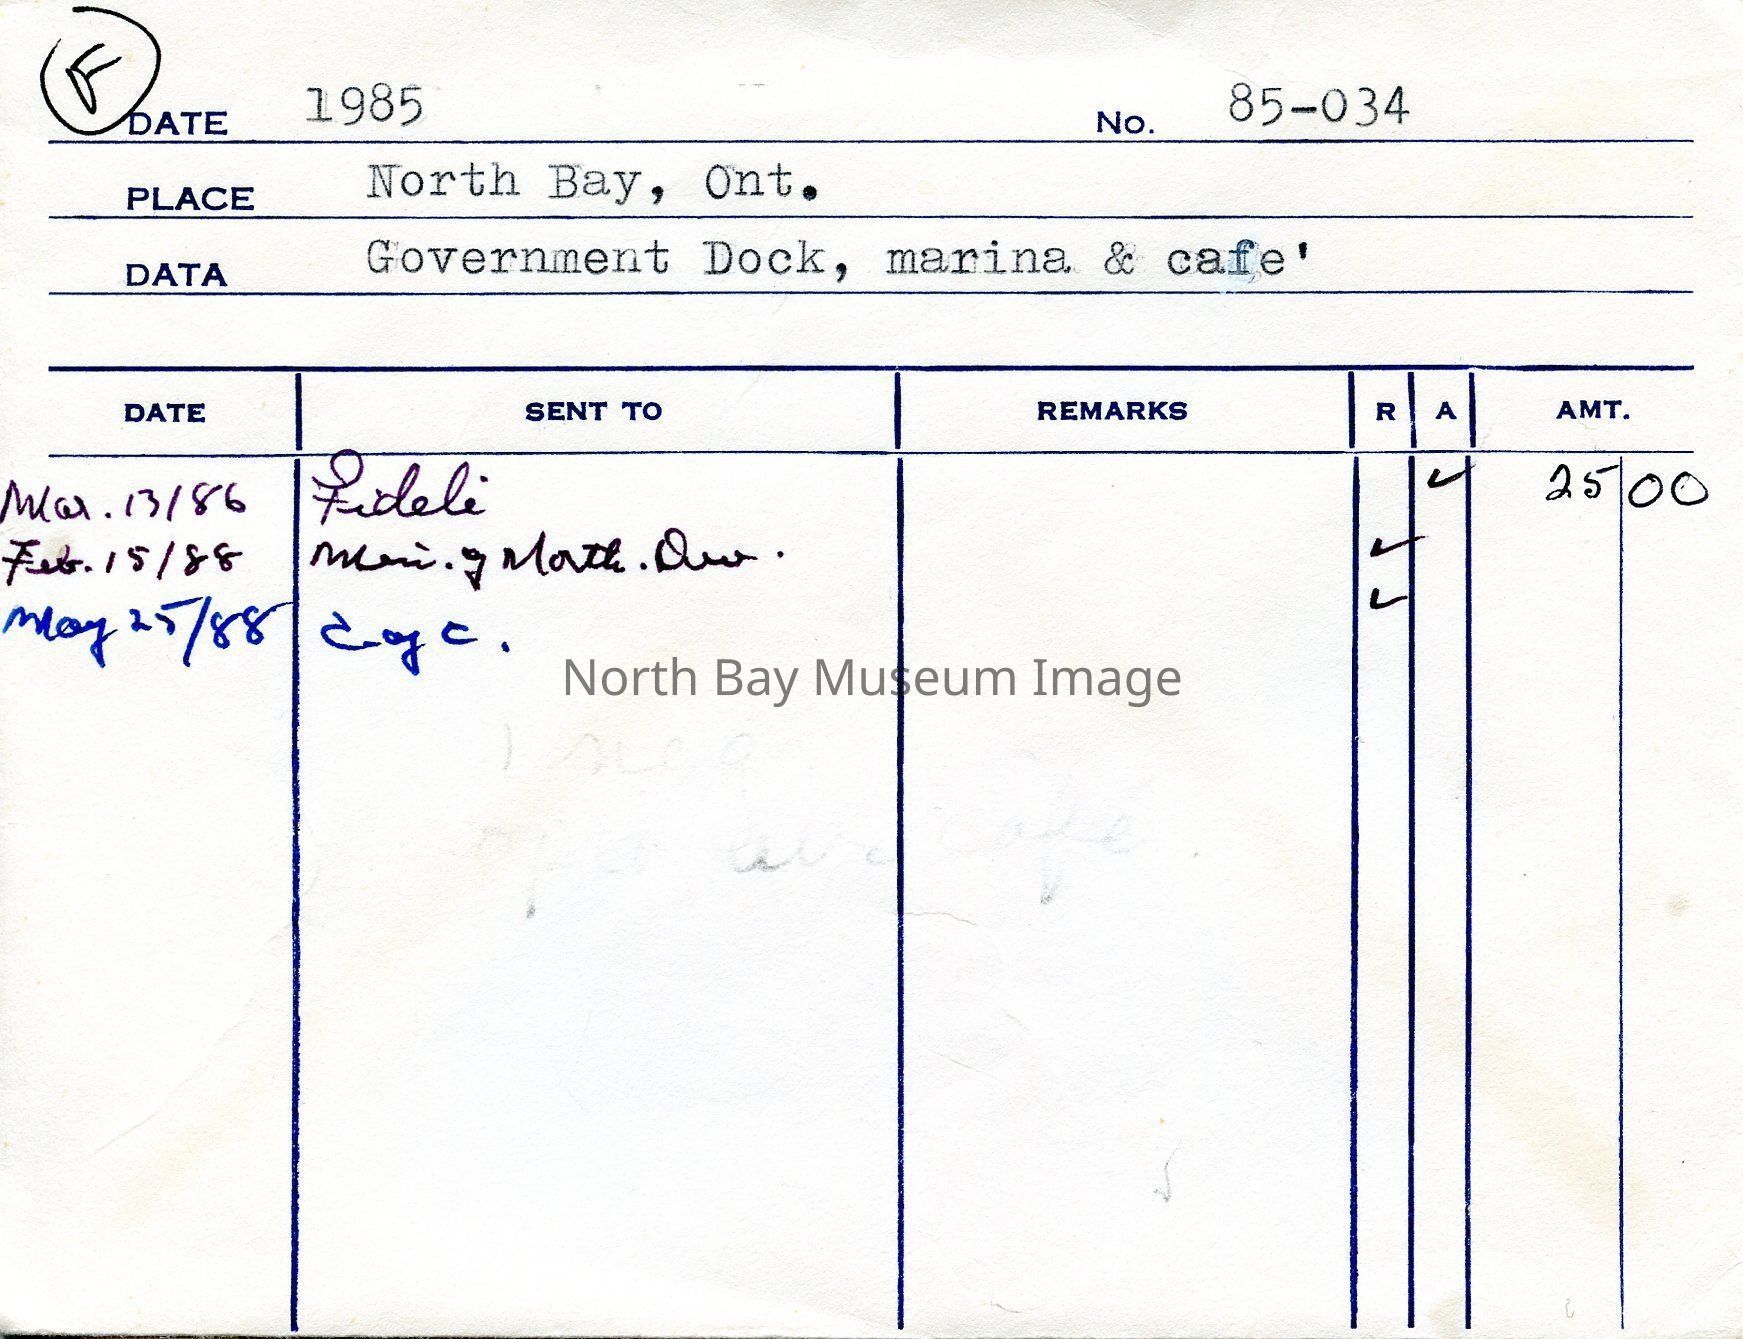 F
DATE 1985 No. 85-034
PLACE North Bay, Ont.
DATA Government Dock, marina & cafe'
DATE SENT TO REMARKS R A AMT.
Mar. 13/86 Fideli ✓ 25 00
Feb. 15/88 Min. of North. Dev. ✓
May 25/88 C of C. ✓
North Bay Museum Image
1 neg